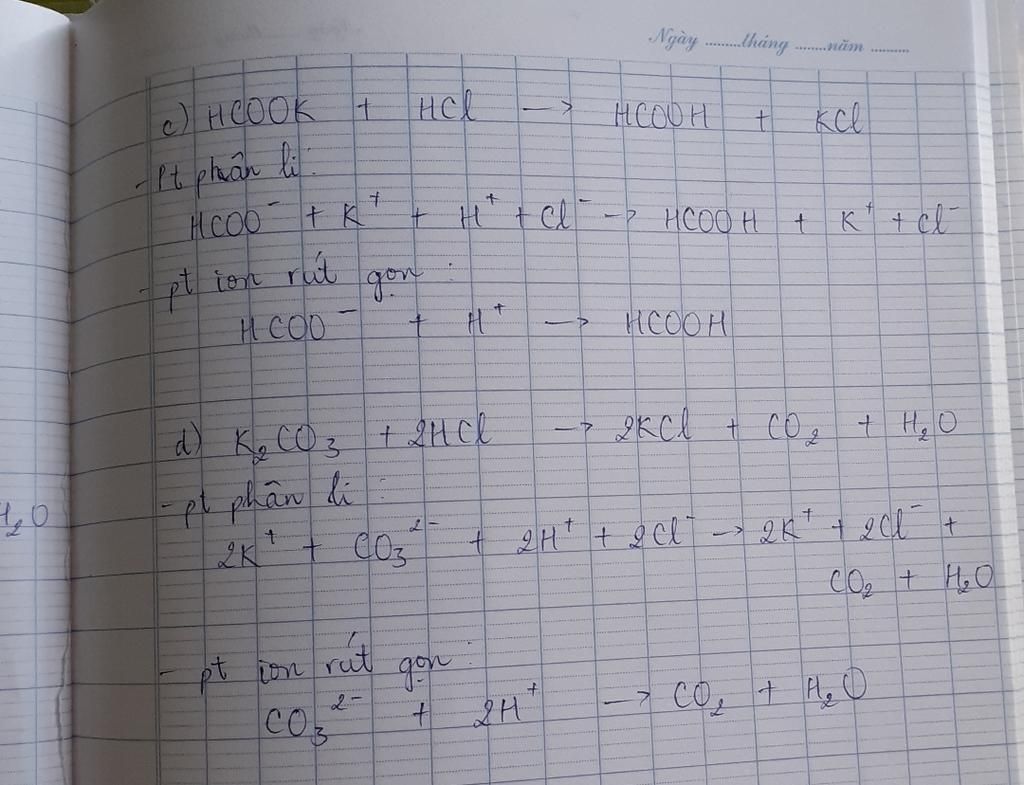 Ngày .........tháng ........năm .........
c) HCOOK + HCl → HCOOH + KCl
- Pt phân li :
HCOO⁻ + K⁺ + H⁺ + Cl⁻ → HCOOH + K⁺ + Cl⁻
- pt ion rút gọn :
HCOO⁻ + H⁺ → HCOOH
d) K₂CO₃ + 2HCl → 2KCl + CO₂ + H₂O
- pt phân li :
H₂O
2K⁺ + CO₃²⁻ + 2H⁺ + 2Cl⁻ → 2K⁺ + 2Cl⁻ +
CO₂ + H₂O
- pt ion rút gọn :
CO₃²⁻ + 2H⁺ → CO₂ + H₂O